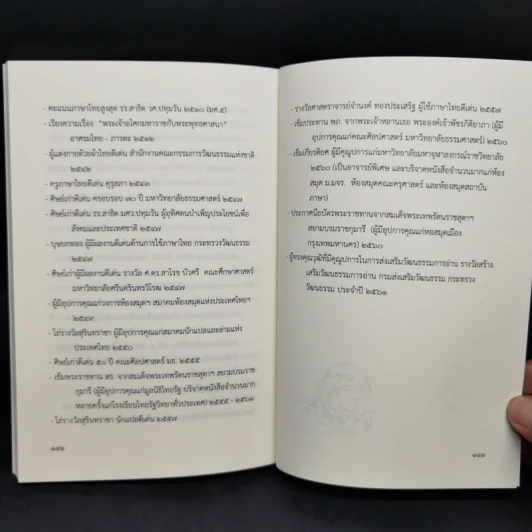 - คะแนนภาษาไทยสูงสุด รร.สาธิต วศ.ปทุมวัน ๒๕๑๐ (มศ.๕)
- เรียงความเรื่อง "พระเจ้าอโศกมหาราชกับพระพุทธศาสนา"
อาศรมไทย - ภารตะ ๒๕๑๒
- ผู้แต่งกายด้วยผ้าไทยดีเด่น สำนักงานคณะกรรมการวัฒนธรรมแห่งชาติ
- ครูภาษาไทยดีเด่น คุรุสภา
- ศิษย์เก่าดีเด่น ครอบรอบ ๗๐ ปี มหาวิทยาลัยธรรมศาสตร์ ๒๕๔๗
- ศิษย์เก่าดีเด่น รร.สาธิต มศว.ปทุมวัน ผู้อุทิศตนบำเพ็ญประโยชน์เพื่อ
สังคมและประเทศชาติ ๒๕๔๗
- บุษบกทอง ผู้มีผลงานดีเด่นด้านการใช้ภาษาไทย กระทรวงวัฒนธรรม
๒๕๔๗
- ศิษย์เก่าผู้มีผลงานดีเด่น รางวัล ศ.ดร.สาโรช บัวศรี คณะศึกษาศาสตร์
มหาวิทยาลัยศรีนครินทรวิโรฒ ๒๕๔๗
- ผู้มีอุปการคุณแก่วงการห้องสมุดฯ สมาคมห้องสมุดแห่งประเทศไทยฯ
๒๕๔๙
- โล่รางวัลสุรินทราชา ผู้มีอุปการคุณแก่สมาคมนักแปลและล่ามแห่ง
ประเทศไทย ๒๕๕๐
- ศิษย์เก่าดีเด่น ๕๐ ปี คณะศิลปศาสตร์ มธ. ๒๕๕๕
- เข็มพระราชทาน สธ. จากสมเด็จพระเทพรัตนราชสุดาฯ สยามบรมราช
กุมารี (ผู้มีอุปการคุณแก่มูลนิธิไทยรัฐ บริจาคหนังสือจำนวนมาก
หลายครั้งแก่โรงเรียนไทยรัฐวิทยาทั่วประเทศ) ๒๕๕๕ - ๒๕๖๑
- โล่รางวัลสุรินทราชา นักแปลดีเด่น ๒๕๕๗
๑๔๒
- รางวัลศาสตราจารย์จำนงค์ ทองประเสริฐ ผู้ใช้ภาษาไทยดีเด่น ๒๕๕๗
- เข็มประทาน พภ. จากพระเจ้าหลานเธอ พระองค์เจ้าพัชรกิติยาภา (ผู้มี
อุปการคุณแก่คณะศิลปศาสตร์ มหาวิทยาลัยธรรมศาสตร์) ๒๕๖๐
- เข็มเกียรติยศ ผู้มีคุณูปการแก่มหาวิทยาลัยมหาจุฬาลงกรณ์ราชวิทยาลัย
๒๕๖๐ (เป็นอาจารย์พิเศษ และบริจาคหนังสือจำนวนมากแก่ห้อง
สมุด ม.มจร. ห้องสมุดคณะครุศาสตร์ และห้องสมุดสถาบัน
ภาษา)
- ประกาศนียบัตรพระราชทานจากสมเด็จพระเทพรัตนราชสุดาฯ
สยามบรมราชกุมารี (ผู้มีอุปการคุณแก่หอสมุดเมือง
กรุงเทพมหานคร) ๒๕๖๐
- ผู้ทรงคุณวุฒิที่มีคุณูปการในการส่งเสริมวัฒนธรรมการอ่าน รางวัลสร้าง
เสริมวัฒนธรรมการอ่าน กรมส่งเสริมวัฒนธรรม กระทรวง
วัฒนธรรม ประจำปี ๒๕๖๑
๑๔๓